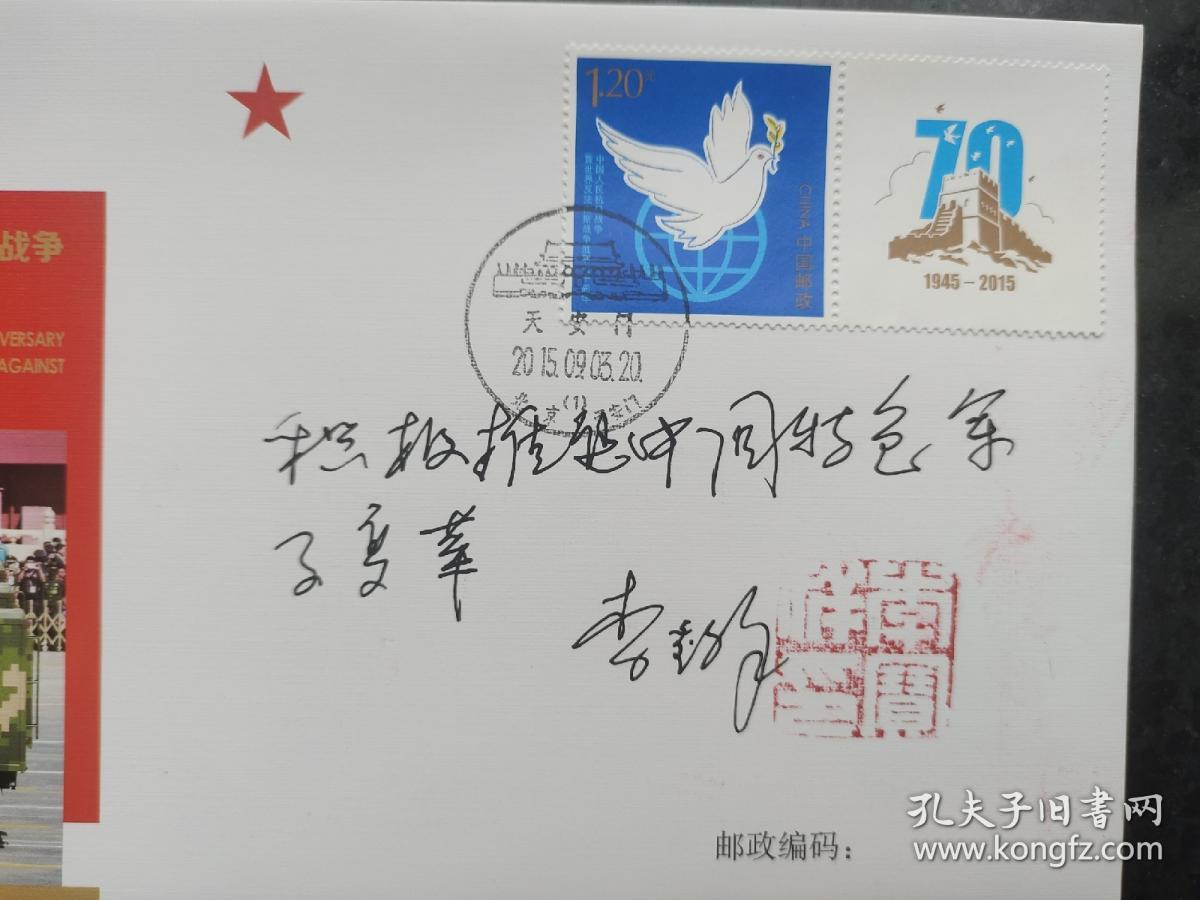 战争
VERSARY
AGAINST
1.20元
中国人民抗日战争
CHINA 中国邮政
70
1945-2015
天安门
2015.09.03.20
积极推进中国特色军
事变革
李
邮政编码：
孔夫子旧书网
www.kongfz.com